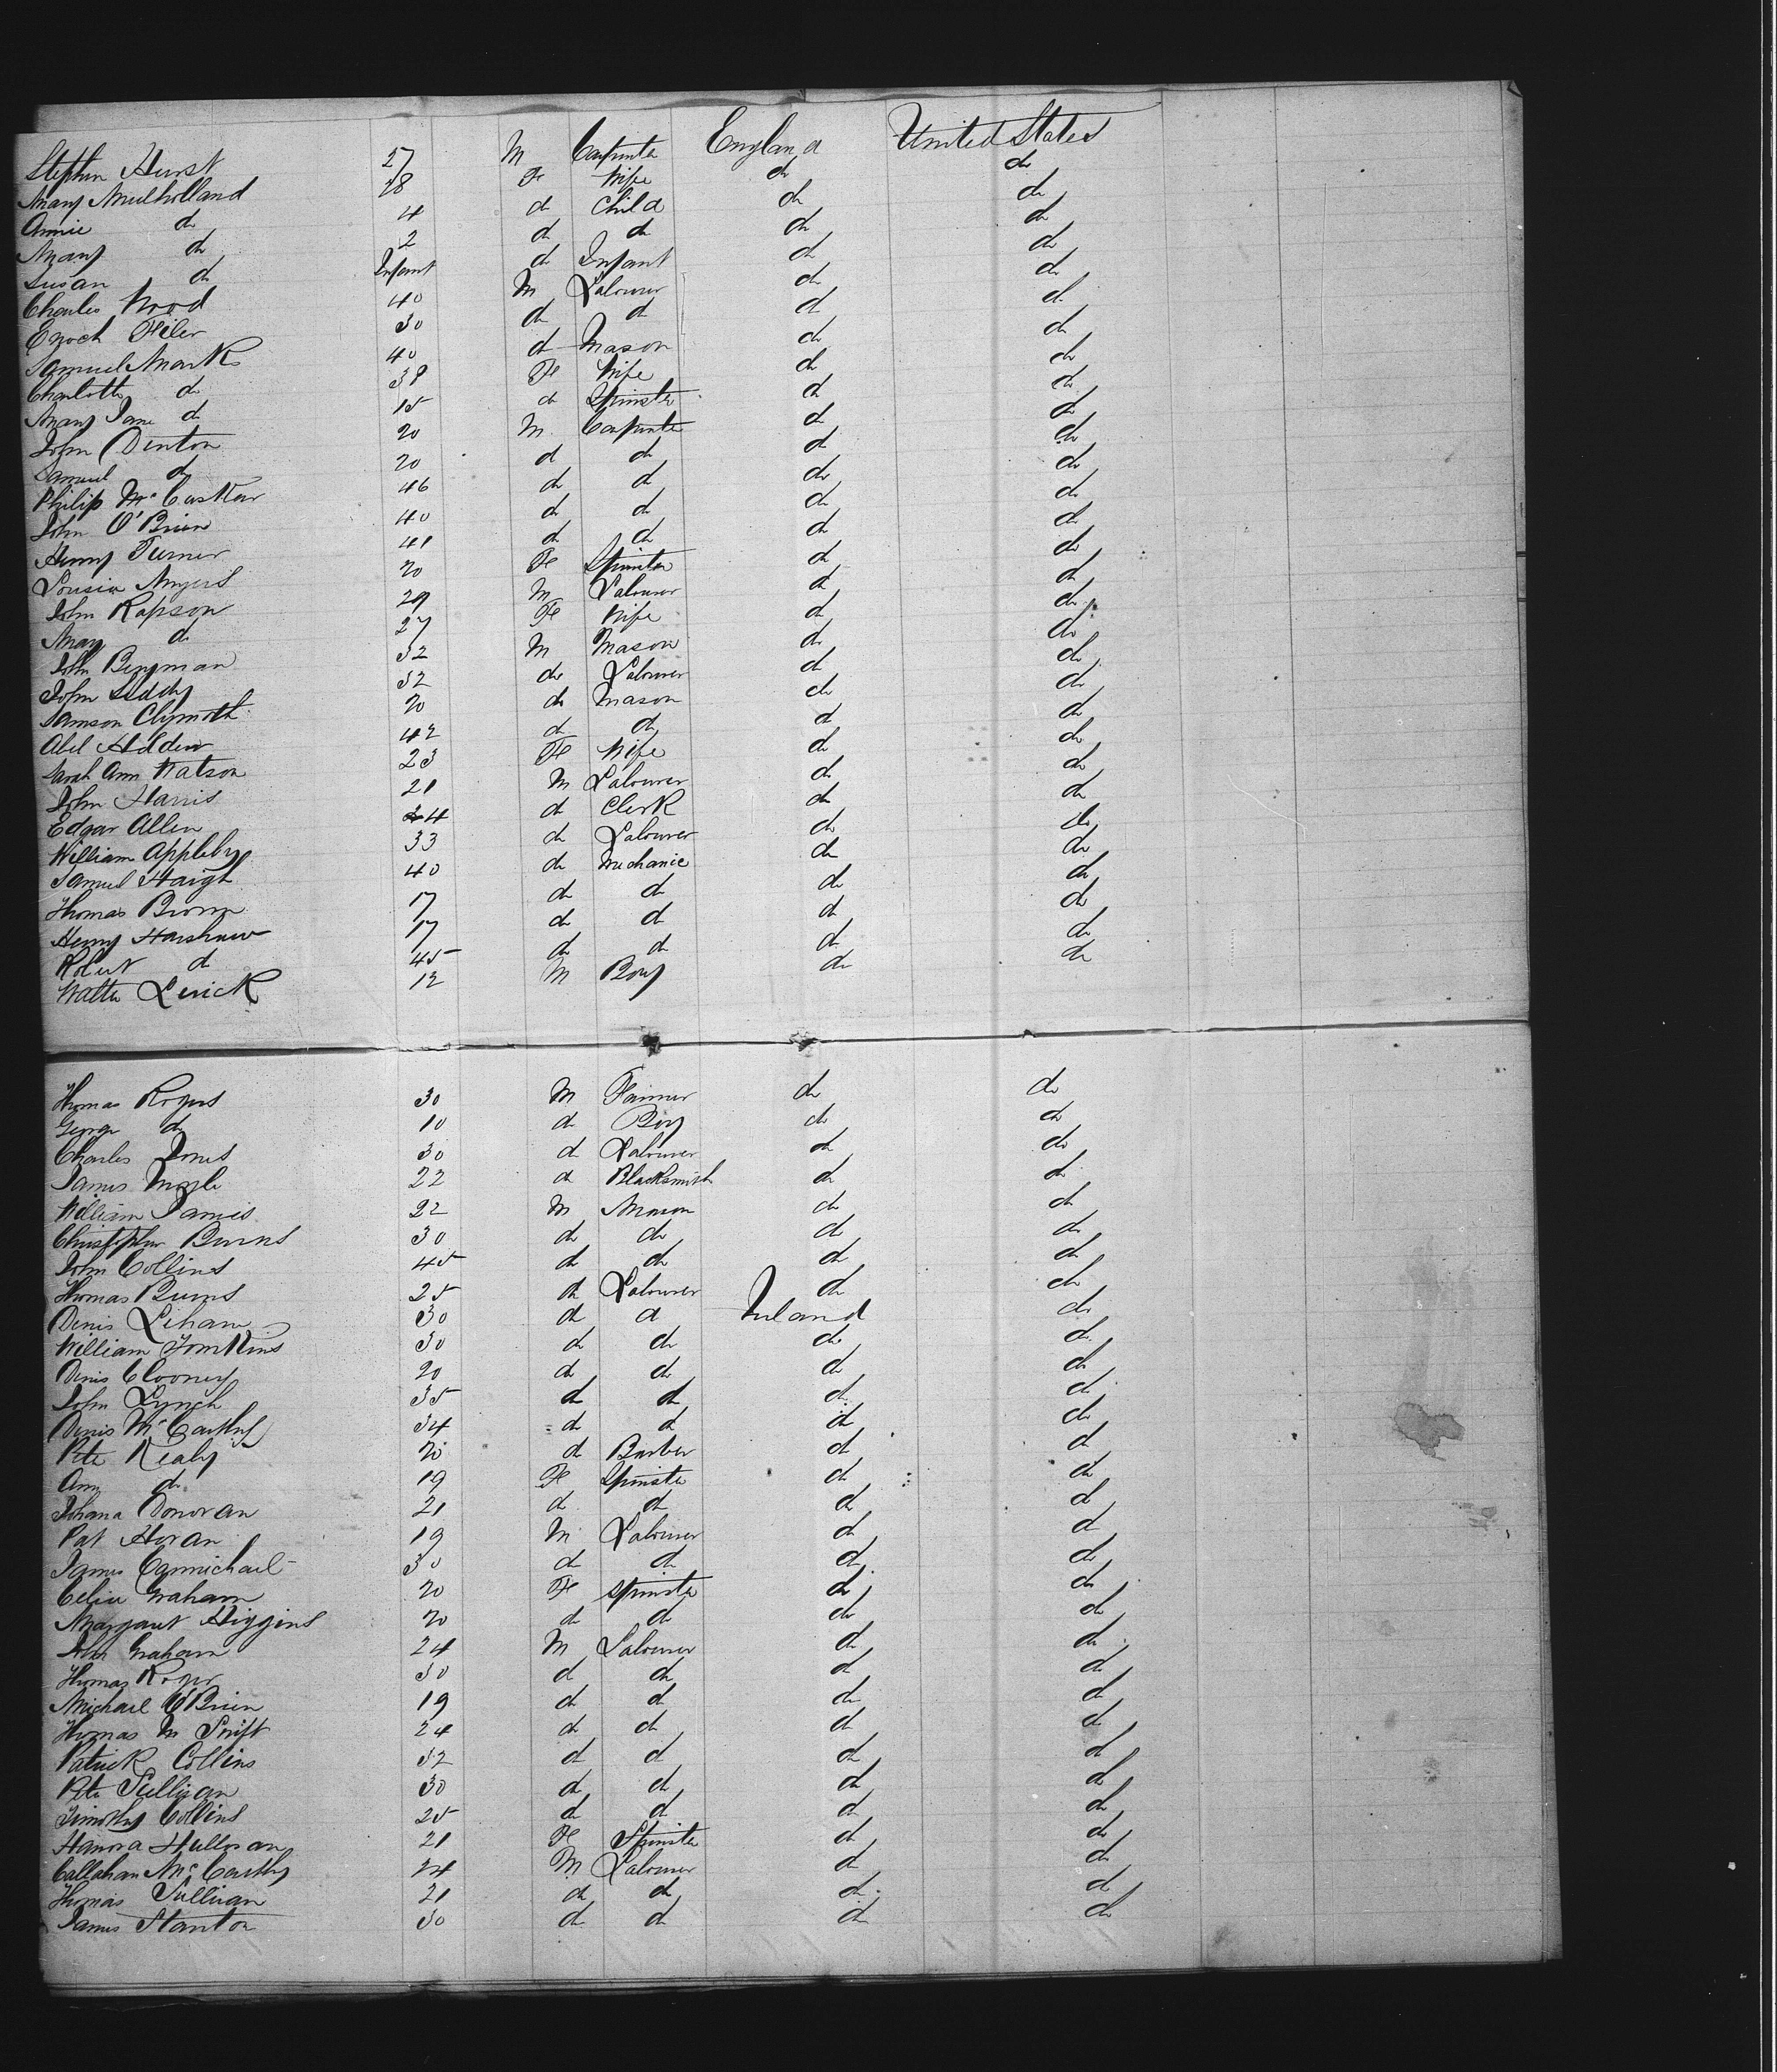 Stephen Hurst 27 M Carpenter England United States
Mary Mulholland 28 Fe Wife do do
Annie do 4 do Child do do
Mary do 2 do do do do
Susan do Infant do Infant do do
Charles Wood 40 M Labourer do do
Enoch Filer 30 do do do do
Samuel Marks 40 do Mason do do
Charlotte do 38 Fe Wife do do
Mary Jane do 15 do Spinster do do
John Denton 20 M Carpenter do do
Samuel do 20 do do do do
Philip McCusker 46 do do do do
John O'Brien 40 do do do do
Henry Turner 41 do do do do
Lousia Myers 20 Fe Spinster do do
John Rapson 29 M Labourer do do
Mary do 27 Fe Wife do do
John Benyman 32 M Mason do do
John Liddy 32 do Labourer do do
Samson Clymoth 20 do Mason do do
Abel Holden 42 do do do do
Sarah Ann Watson 23 Fe Wife do do
John Harris 21 M Labourer do do
Edgar Allen 24 do Clerk do do
William Appleby 33 do Labourer do do
Samuel Haigh 40 do Mechanic do do
Thomas Brown 17 do do do do
Henry Harshaw 17 do do do do
Robert do 45 do do do do
Walter Levick 12 M Boy do do
Thomas Rogers 30 M Farmer do do
George do 10 do Boy do do
Charles Jones 30 do Labourer do do
James 22 do Blacksmith do do
William James 22 M Mason do do
Christopher Burns 30 do do do do
John Collins 45 do do do do
Thomas Burns 25 do Labourer do do
Denis Lehane 30 do do Ireland do
William Tomkins 30 do do do do
Denis Clooney 20 do do do do
John Lynch 35 do do do do
Denis McCarthy 34 do do do do
Peter Nealy 20 do Barber do do
Ann do 19 Fe Spinster do do
Johana Donovan 21 do do do do
Pat Horan 19 M Labourer do do
James Carmichael 30 do do do do
Celia Graham 20 Fe Spinster do do
Margaret Higgins 20 do do do do
John Graham 24 M Labourer do do
Thomas Roger 30 do do do do
Michael O'Brien 19 do do do do
Thomas M Swift 24 do do do do
Patrick Collins 32 do do do do
Peter Sulligan 30 do do do do
Timothy Collins 25 do do do do
Hanora 21 Fe Spinster do do
Callahan McCarthy 24 M Labourer do do
Thomas Sullivan 21 do do do do
James Stanton 30 do do do do